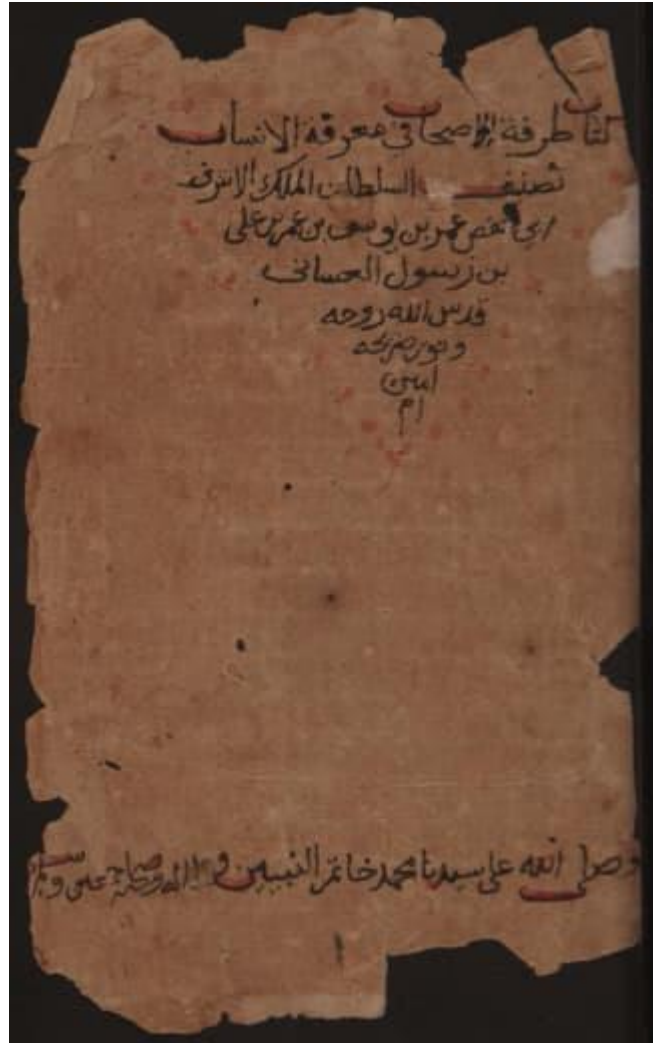 كتاب طرفة الاصحاب في معرفة الانساب
تصنيف السلطان الملك الاشرف
ابي حفص عمر بن يوسف بن عمر بن علي
بن رسول الغساني
قدس الله روحه
ونور ضريحه
امين
ام
وصلى الله على سيدنا محمد خاتم النبيين و اله وصحبه وسلم